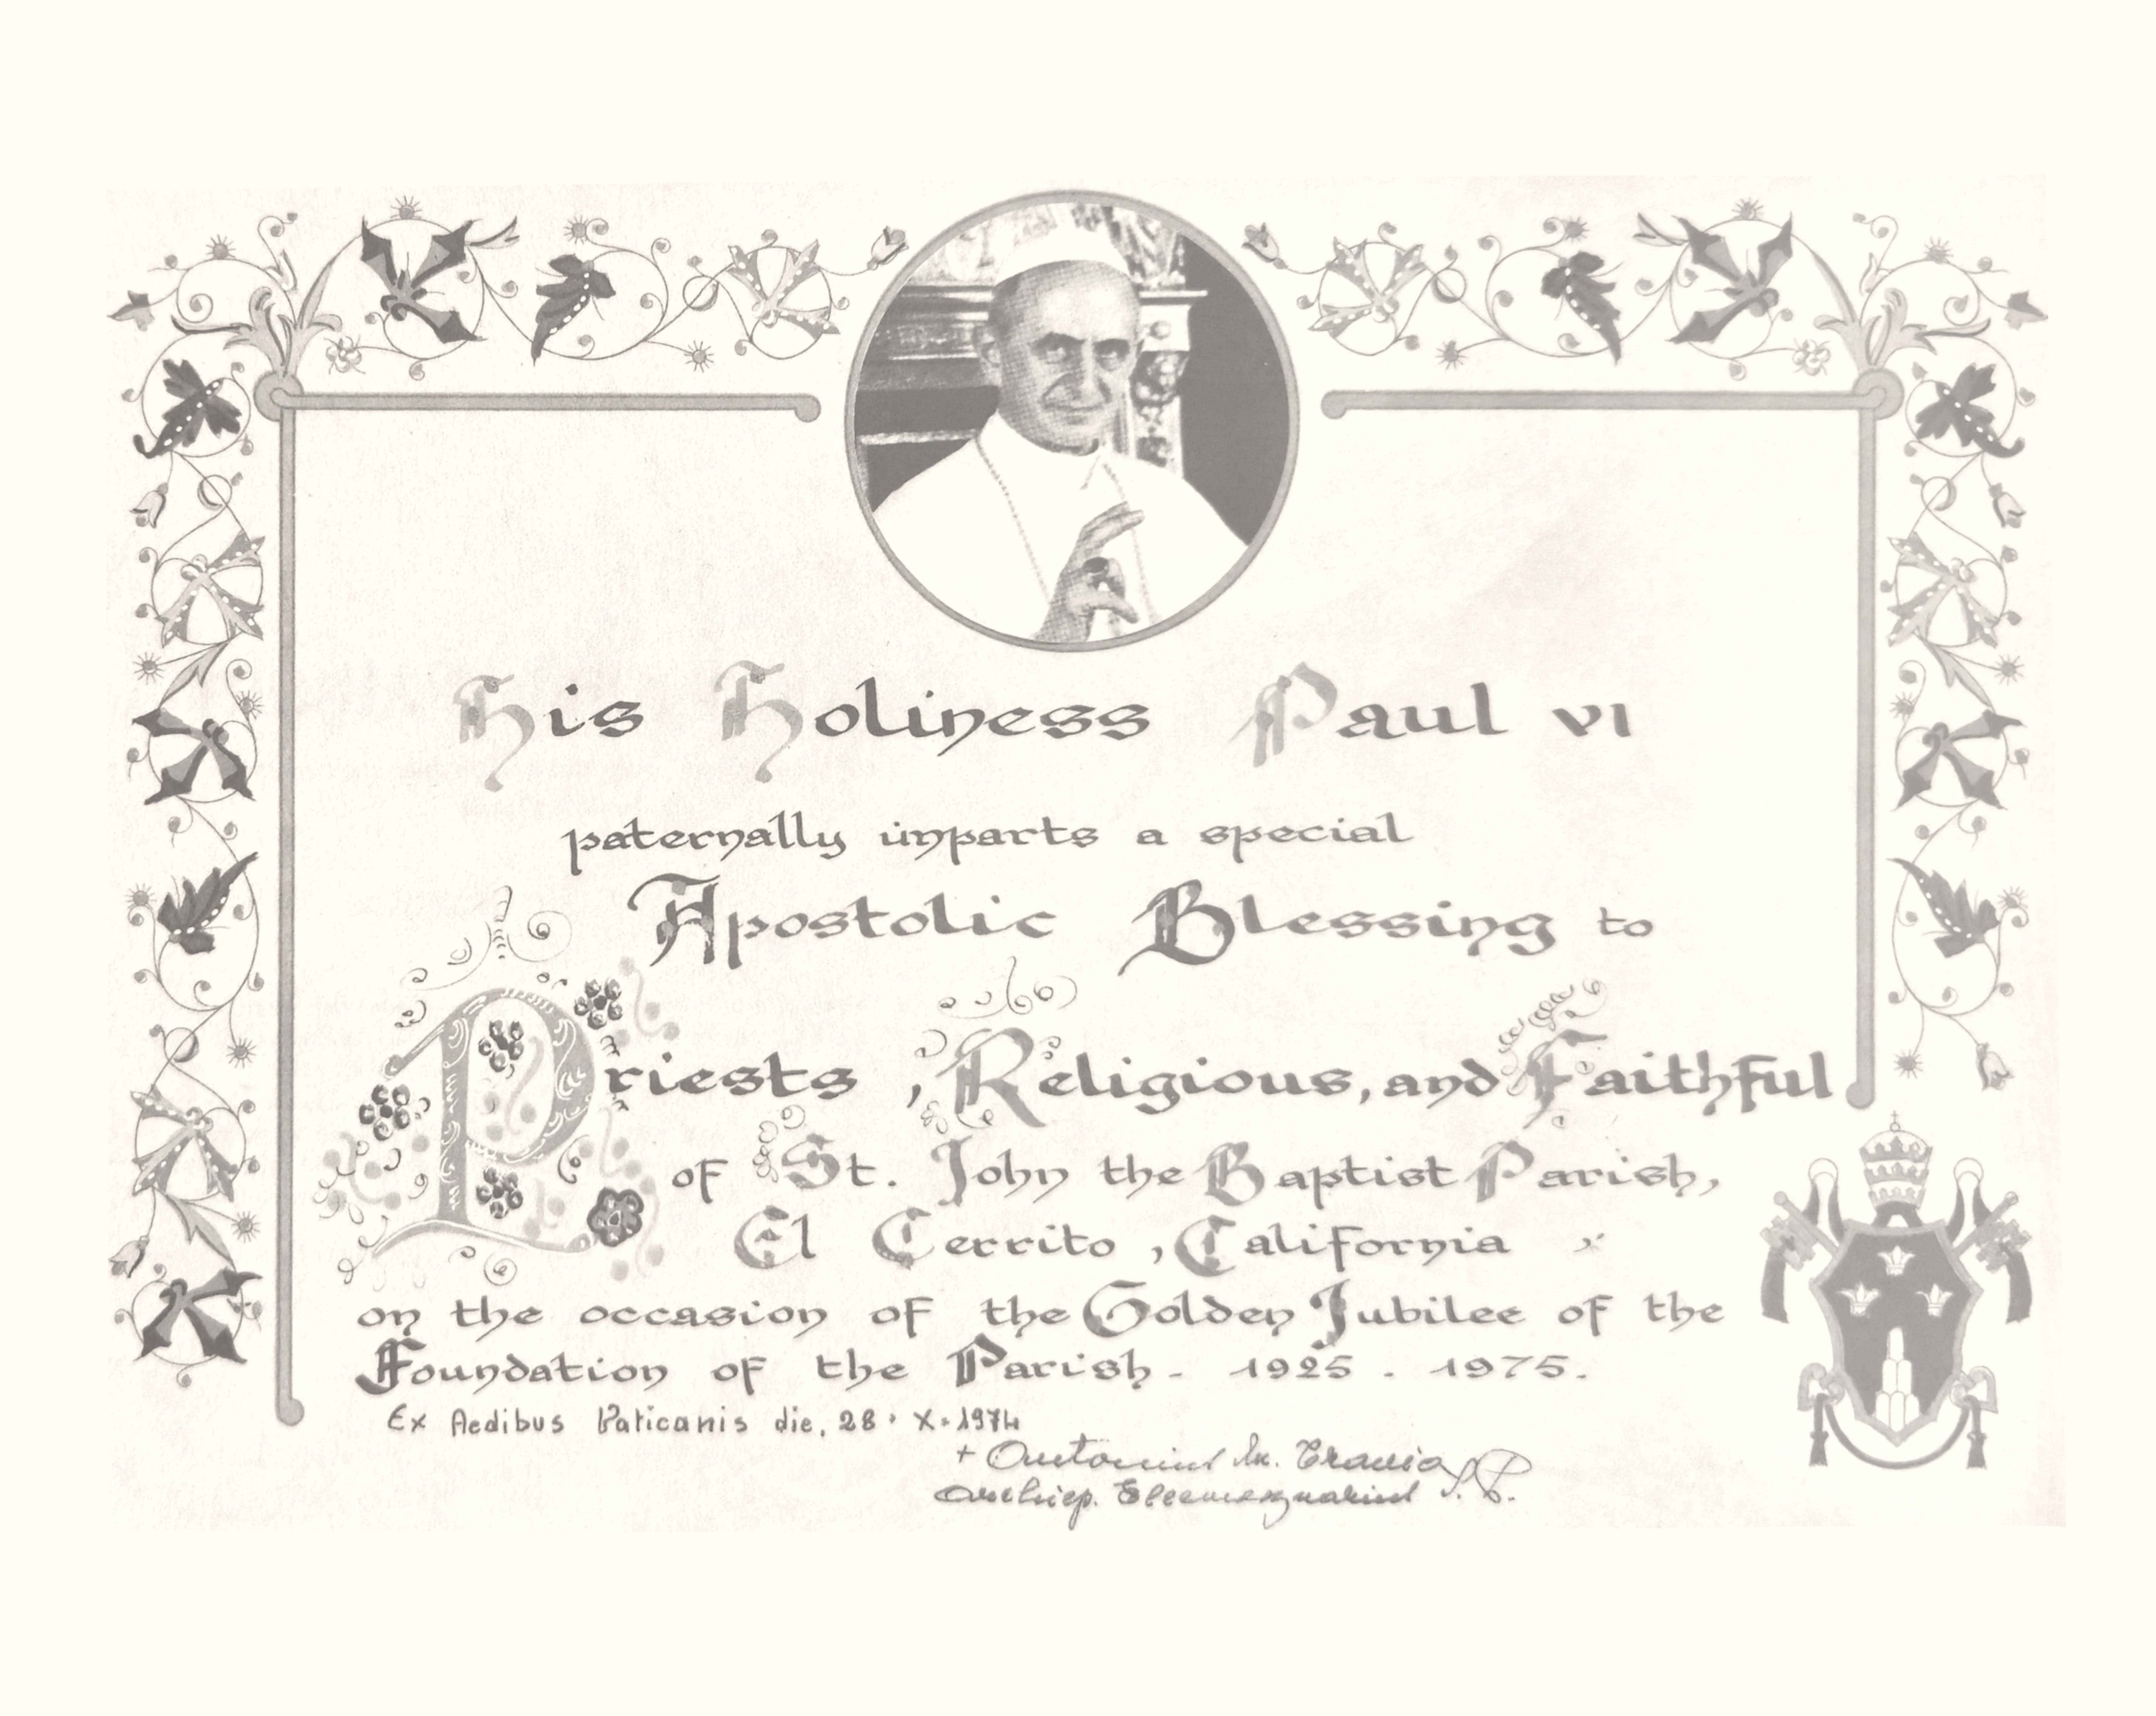 His Holiness Paul VI
paternally imparts a special
Apostolic Blessing to
Priests, Religious, and Faithful
of St. John the Baptist Parish,
El Cerrito, California
on the occasion of the Golden Jubilee of the
Foundation of the Parish - 1925 - 1975.
Ex Aedibus Vaticanis die, 28 · X · 1974
+ Antonius M. Travia
Archiep. Eleemosynarius S.P.